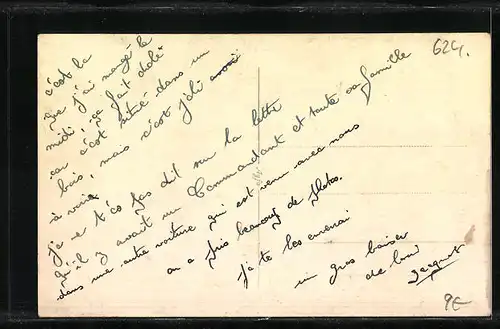 c'est la
que j'ai mangé le
midi, ça fait drôle
car c'est situé dans un
bois, mais c'est joli
à voir
je ne t'es pas dit sur la lettre
qu'il y avait un Commandant et toute sa famille
dans une autre voiture qui est venu avec nous
on a pris beaucoup de photos.
je te les enverrai
un gros baiser
de loin
Jacquot
624.
9E